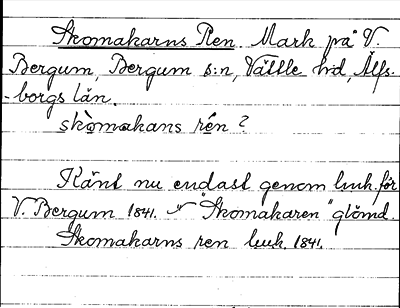 Skomakarns Ren. Mark på V.
Bergum, Bergum s:n, Vättle hd, Älfs-
-borgs län.
skòmakans rén?
Känt nu endast genom huk. för
V. Bergum 1841. "Skomakaren" glömd.
Skomakarns ren huk. 1841.